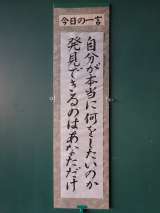 今日の一言
自分が本当に何をしたいのか
発見できるのはあなただけ